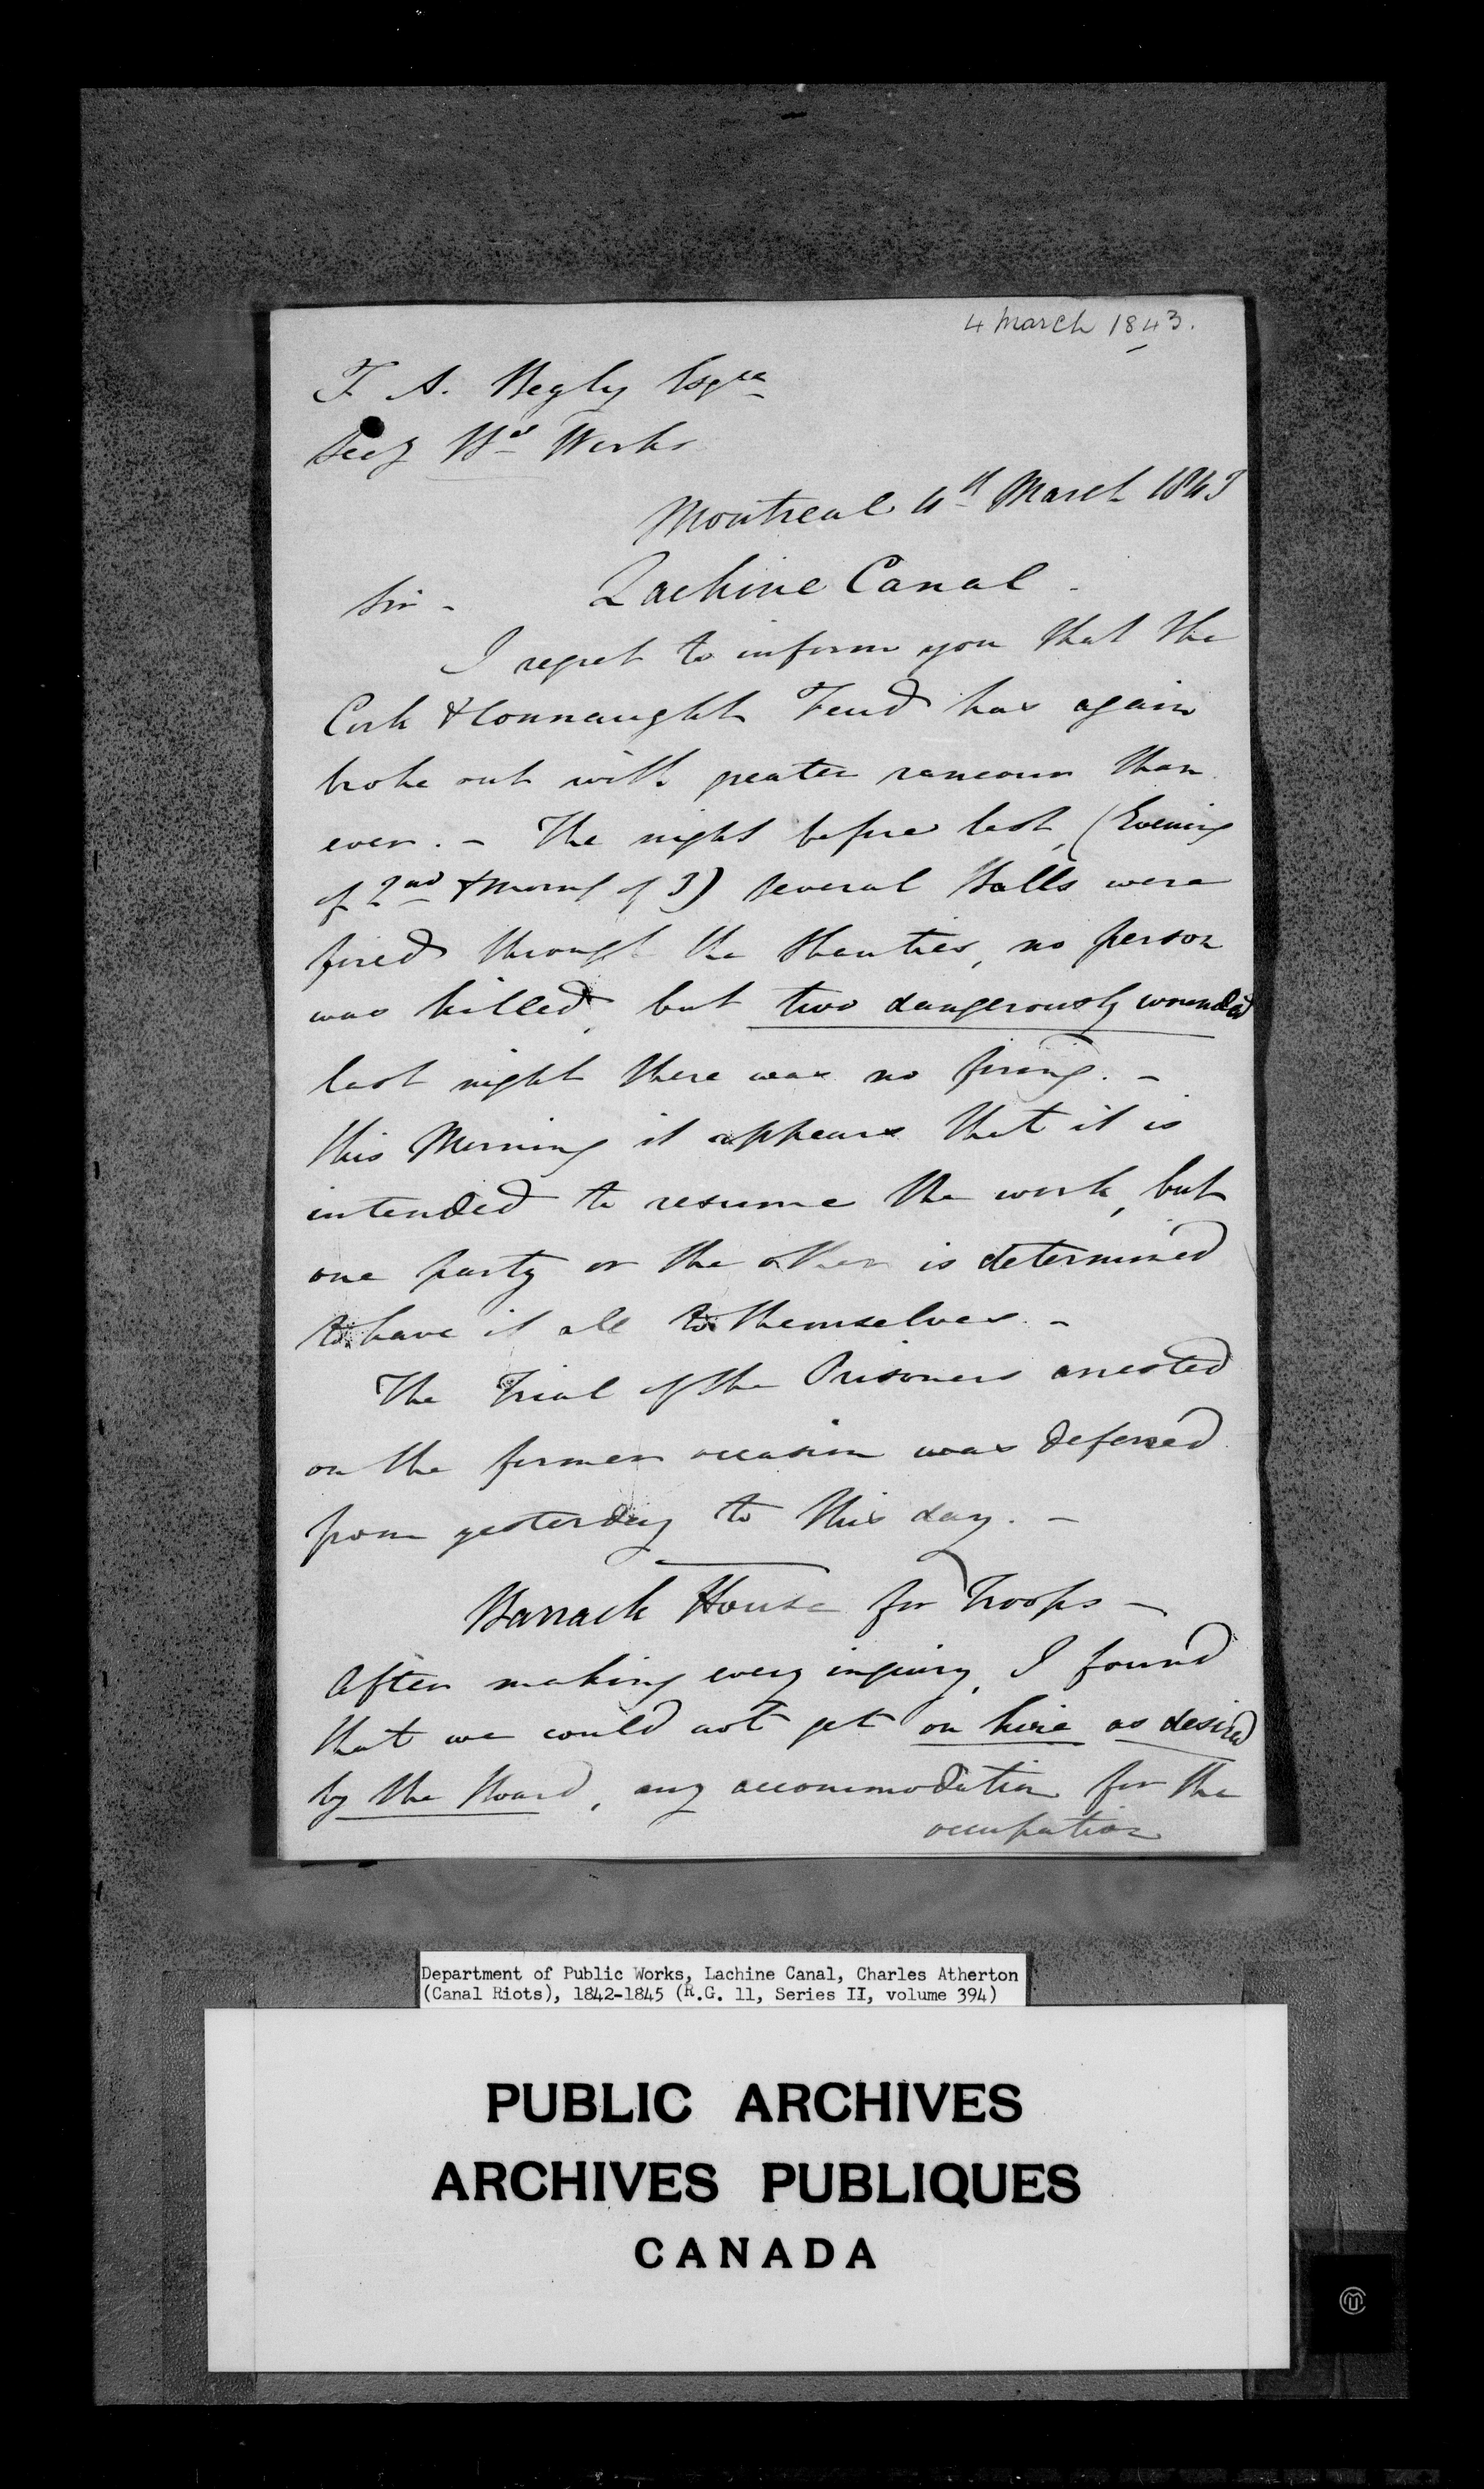 4 March 1843.
T. A. Begly Esqre
Secy Bd Works
Montreal 4th March 1843
Sir - Lachine Canal -
I regret to inform you that the
Cork & Connaught Feud has again
broke out with greater rancour than
ever. - The night before last, (Evening
of 2nd & Morng of 3) several Balls were
fired through the Shanties, no person
was killed, but two dangerously wounded
last night there was no firing. -
this Morning it appears that it is
intended to resume the work, but
one party or the other is determined
to have it all to themselves. -
The Trial of the Prisoners arrested
on the former occasion was deferred
from yesterday to this day. -
Barrack House for Troops -
After making every inquiry, I found
that we could not get on hire as desired
by the Board, any accommodation for the
occupation
Department of Public Works, Lachine Canal, Charles Atherton
(Canal Riots), 1842-1845 (R.G. 11, Series II, volume 394)
PUBLIC ARCHIVES
ARCHIVES PUBLIQUES
CANADA